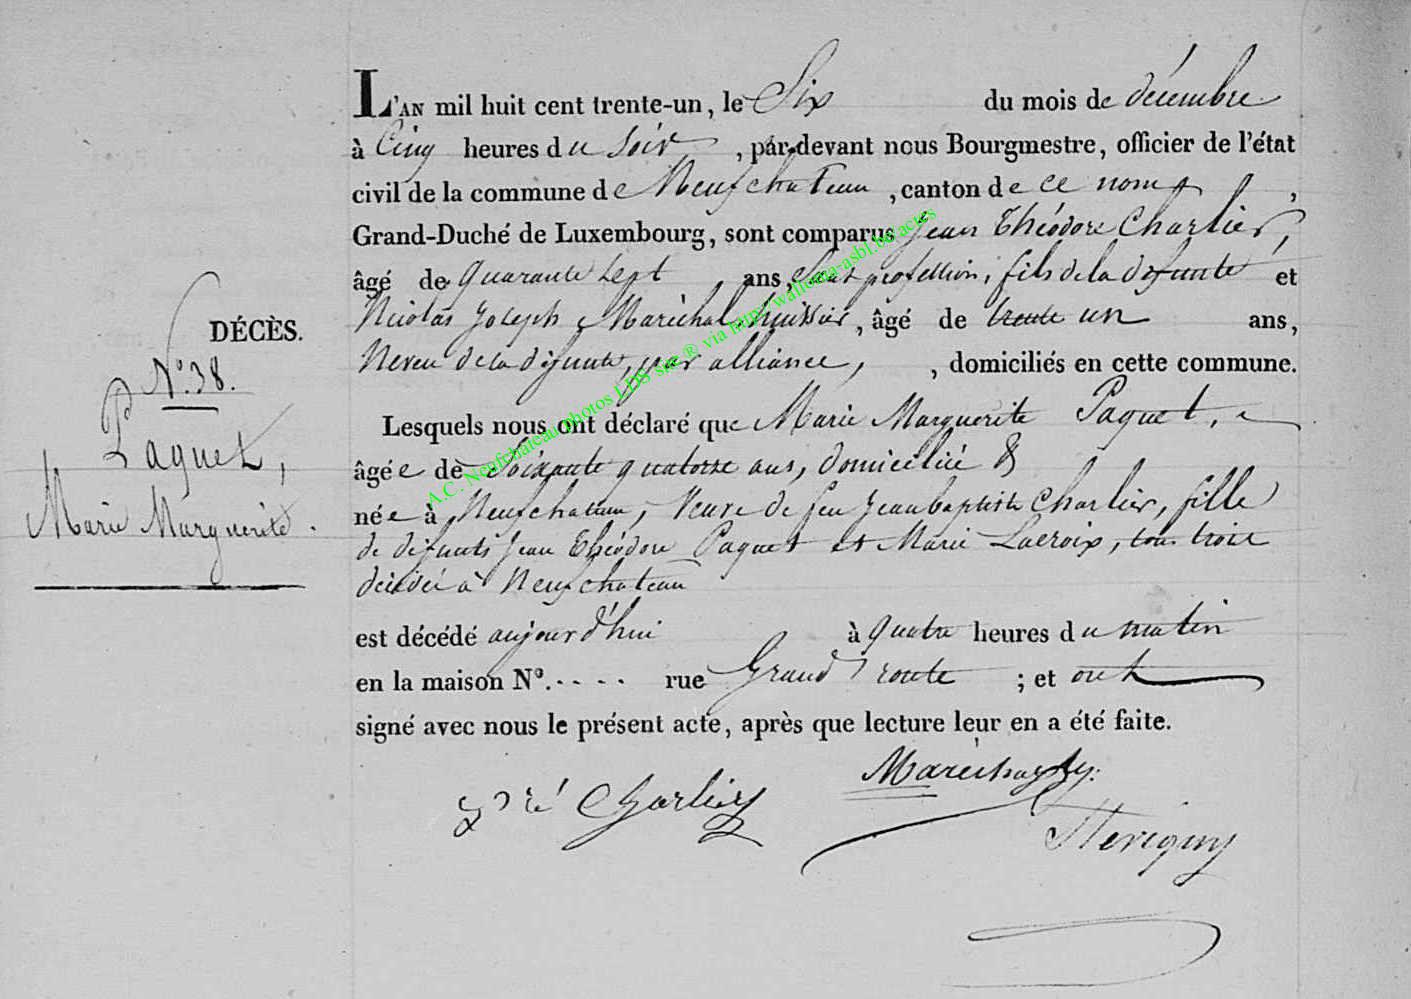 L'AN mil huit cent trente-un, le Six du mois de décembre
à Cinq heures du Soir, par-devant nous Bourgmestre, officier de l'état
civil de la commune de Neufchateau, canton de ce nom,
Grand-Duché de Luxembourg, sont comparus Jean Théodore Charlier,
âgé de quarante Sept ans, Sans profession, fils de la défunte et
Nicolas Joseph Maréchal, huissier, âgé de trente un ans,
Neveu de la défunte, par alliance, , domiciliés en cette commune.
DÉCÈS.
N° 38.
Paquet,
Marie Marguerite.
Lesquels nous ont déclaré que Marie Marguerite Paquet,
âgée de Soixante quatorze ans, domiciliée &
née à Neufchateau, Veuve de feu Jean baptiste Charlier, fille
de défunts Jean Théodore Paquet et Marie Lacroix, tous trois
décédés à Neufchateau
est décédé aujourd'hui à quatre heures du matin
en la maison N°. .... rue Grand route ; et ont
signé avec nous le présent acte, après que lecture leur en a été faite.
Charlier
A.C. Neufchateau photos LDS site ® via http://walloma-asbl.be/actes